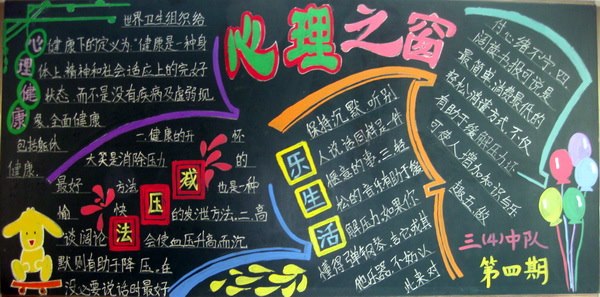 心理之窗
心理健康
世界卫生组织给
健康下的定义为"健康是一种身
体上精神和社会适应上的完好
状态,而不是没有疾病及虚弱现
象,全面健康
包括躯体
健康.
一.健康的开怀
大笑是消除压力的
最好方法,也是一种
愉快的发泄方法.二.高
谈阔论会使血压升高,而沉
默则有助于降压,在
没必要说话时最好
减压法
乐生活
保持沉默,听别
人说话同样是一件
惬意的事.三.轻
松的音乐有助于缓
解压力.如果你
懂得弹钢琴,吉它或其
他乐器,不妨以
此来对
付心绪不宁.四.
阅读书报可说是
最简单,消费最低的
轻松消遣方式,不仅
有助于缓解压力,还
可使人增加知识与乐
趣.五.做
三(4)中队
第四期